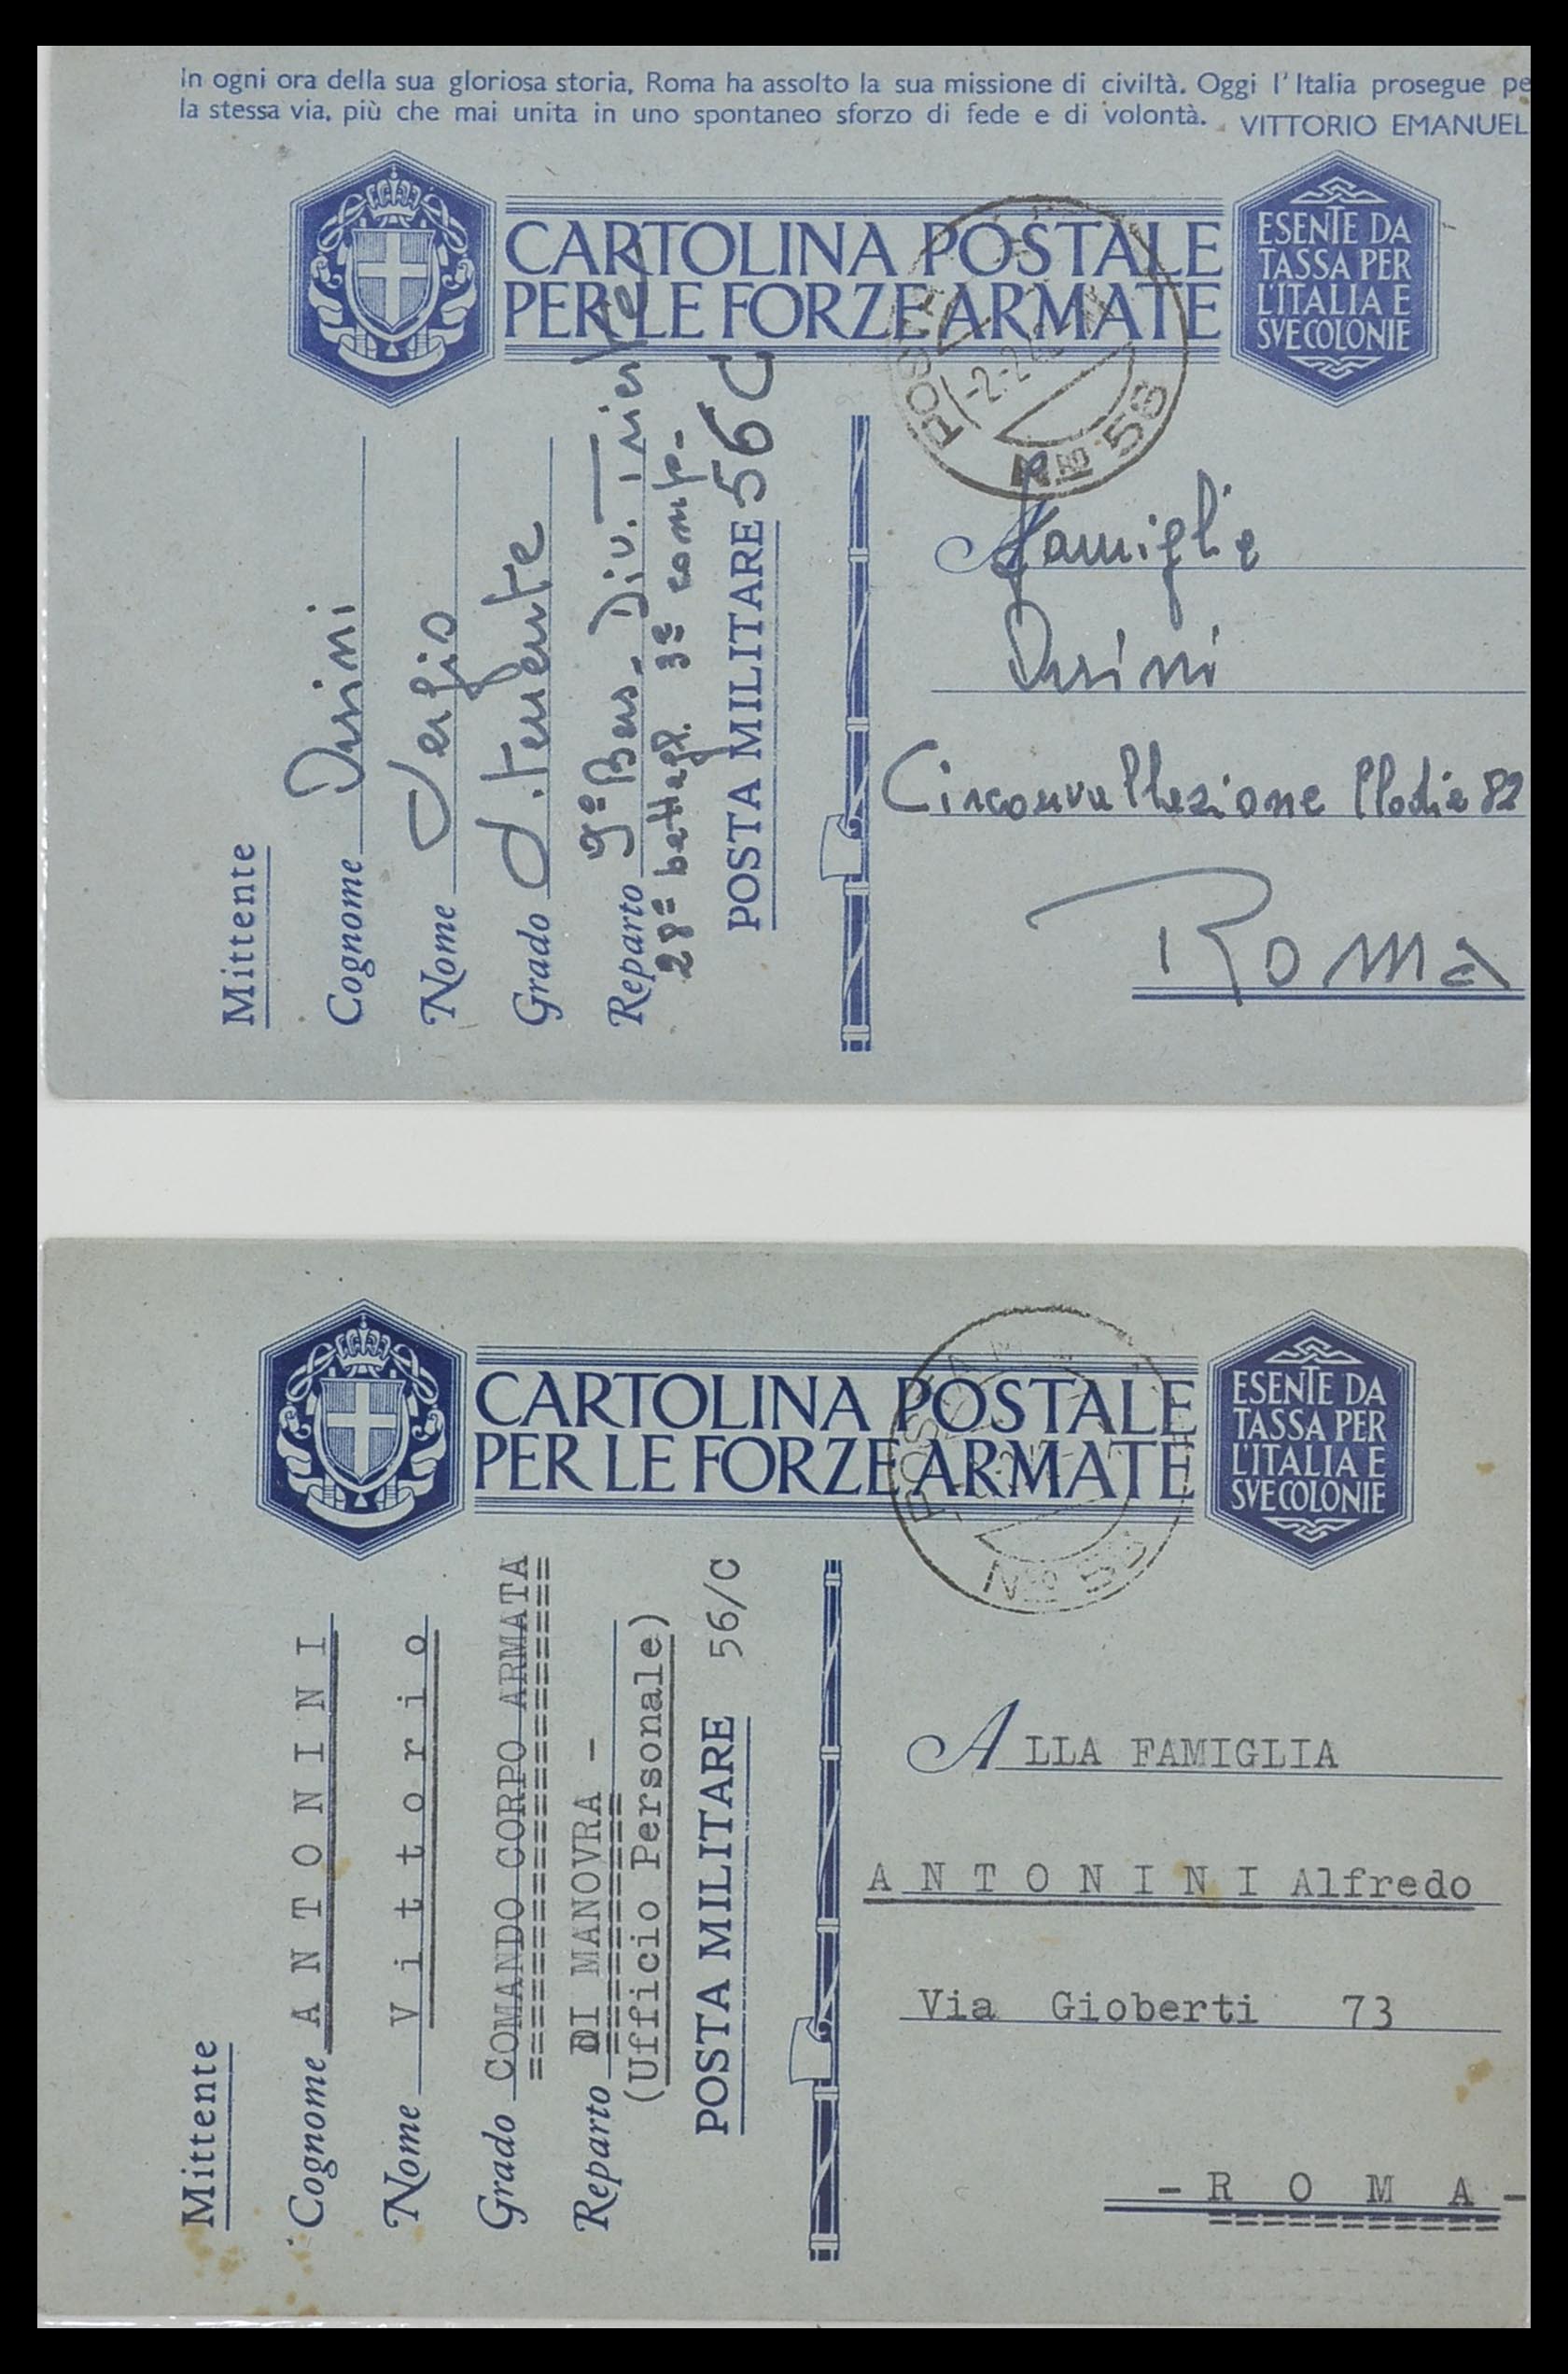 In ogni ora della sua gloriosa storia, Roma ha assolto la sua missione di civiltà. Oggi l'Italia prosegue pe
la stessa via, più che mai unita in uno spontaneo sforzo di fede e di volontà.
VITTORIO EMANUEL
CARTOLINA POSTALE
PER LE FORZE ARMATE
ESENTE DA
TASSA PER
L'ITALIA E
SVE COLONIE
-2-2-42
Nro 56
Mittente
Cognome Orsini
Nome Sergio
Grado S. tenente
Reparto 9º Bers. Div. Trieste
28º battagl. 3ª comp.
POSTA MILITARE 56 C
A famiglia
Orsini
Circonvallazione Clodia 82
Roma
CARTOLINA POSTALE
PER LE FORZE ARMATE
ESENTE DA
TASSA PER
L'ITALIA E
SVE COLONIE
POSTA
Nro 56
Mittente
Cognome A N T O N I N I
Nome V i t t o r i o
Grado COMANDO CORPO ARMATA
Reparto DI MANOVRA -
(Ufficio Personale)
POSTA MILITARE 56/C
A LLA FAMIGLIA
A N T O N I N I Alfredo
Via Gioberti 73
- R O M A -